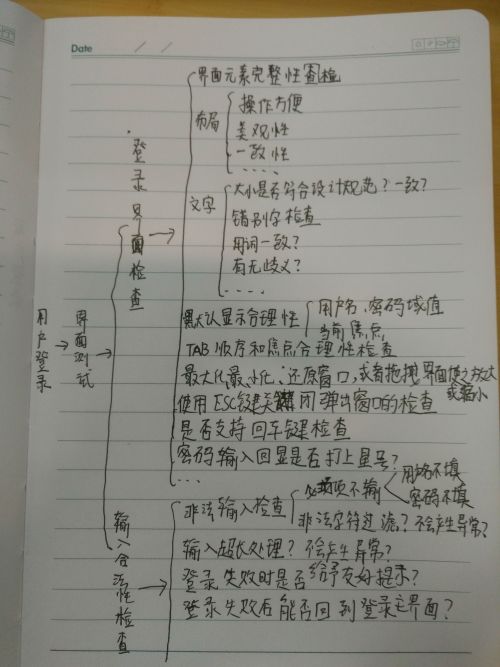 Date / /
界面元素完整性查检
布局
操作方便
美观性
一致性
....
文字
大小是否符合设计规范？一致？
错别字检查
用词一致？
有无歧义？
....
默认显示合理性
用户名、密码域值
当前焦点
TAB 顺序和焦点合理性检查
最大化、最小化、还原窗口,或者拖拽界面使之放大
或缩小
使用ESC键关闭弹出窗口的检查
是否支持回车键检查
密码输入回显是否打上星号？
...
用户登录
界面测试
登录界面检查
输入合法性检查
非法输入检查
必填项不输
用户名不填
密码不填
非法字符过滤？不会产生异常？
输入超长处理？不会产生异常？
登录失败时是否给予友好提示？
登录失败后能否回到登录主界面？